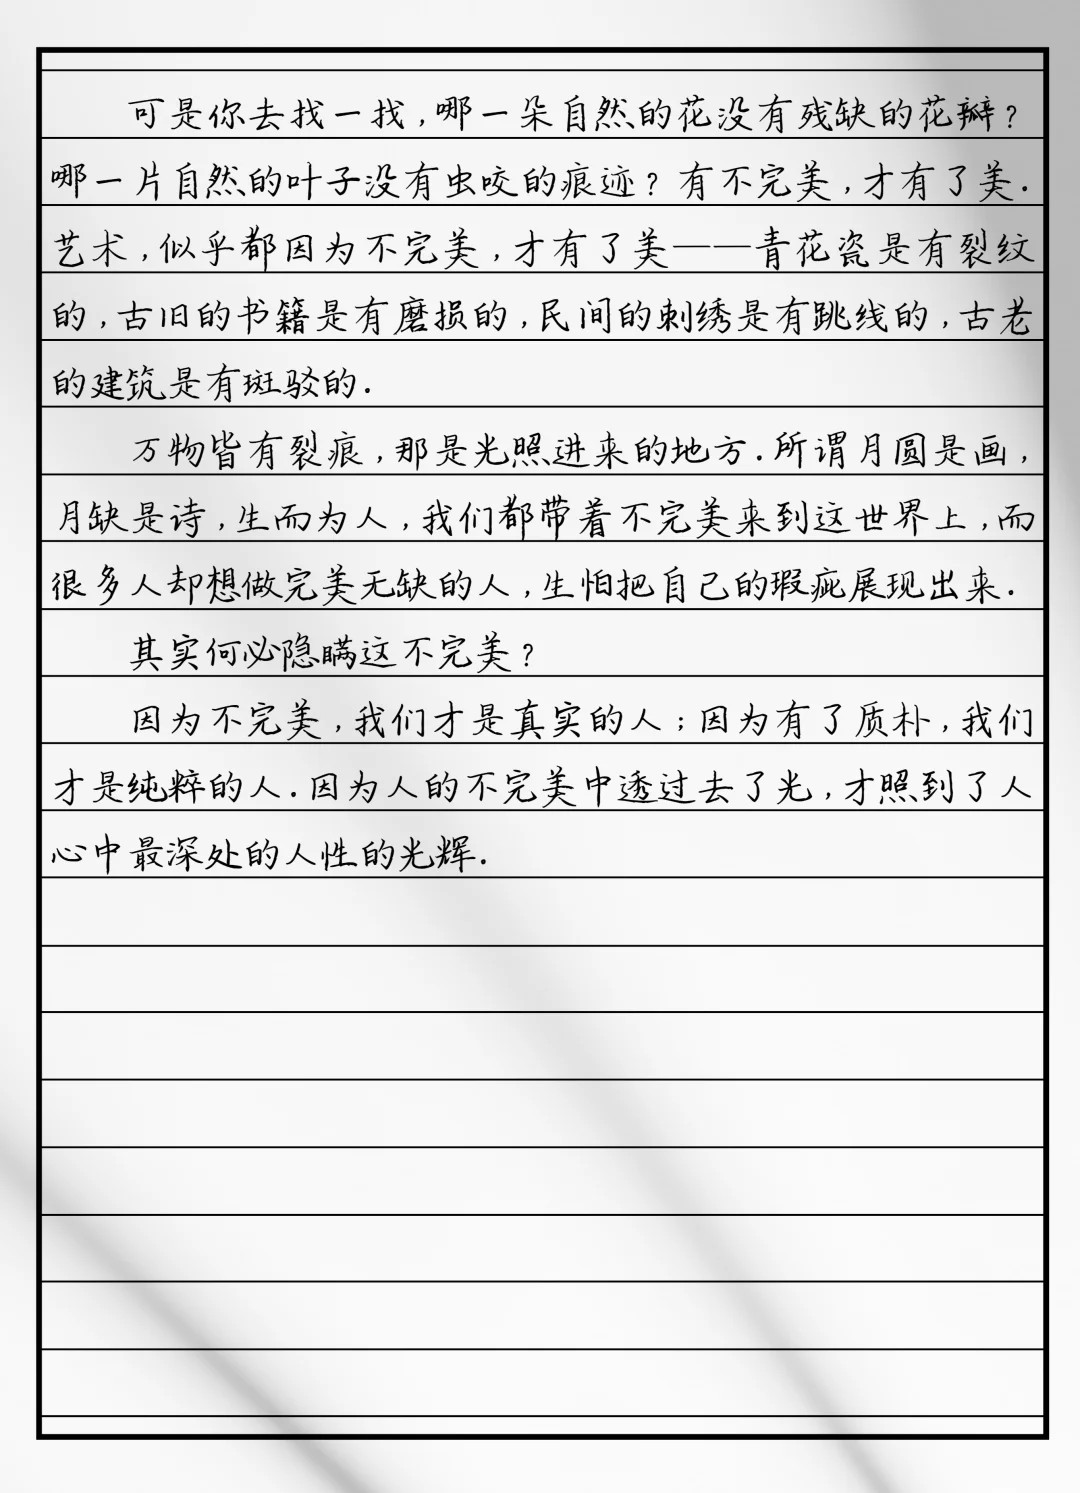 可是你去找一找,哪一朵自然的花没有残缺的花瓣?
哪一片自然的叶子没有虫咬的痕迹?有不完美,才有了美.
艺术,似乎都因为不完美,才有了美——青花瓷是有裂纹
的,古旧的书籍是有磨损的,民间的刺绣是有跳线的,古老
的建筑是有斑驳的.
万物皆有裂痕,那是光照进来的地方.所谓月圆是画,
月缺是诗,生而为人,我们都带着不完美来到这世界上,而
很多人却想做完美无缺的人,生怕把自己的瑕疵展现出来.
其实何必隐瞒这不完美?
因为不完美,我们才是真实的人;因为有了质朴,我们
才是纯粹的人.因为人的不完美中透过去了光,才照到了人
心中最深处的人性的光辉.